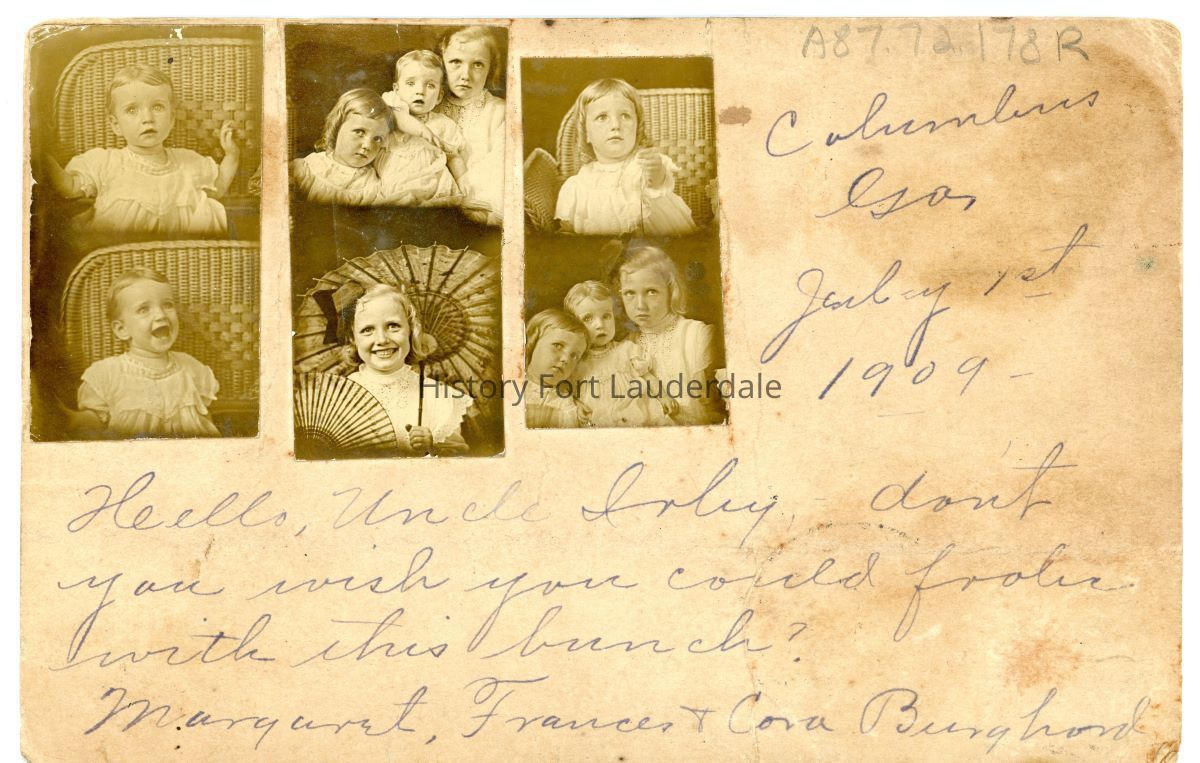 A87 72.178R
Columbus
Ga.
July 1st
1909 -
History Fort Lauderdale
Hello, Uncle Irby, - don't
you wish you could frolic
with this bunch?
Margaret, Frances + Cora Burghard